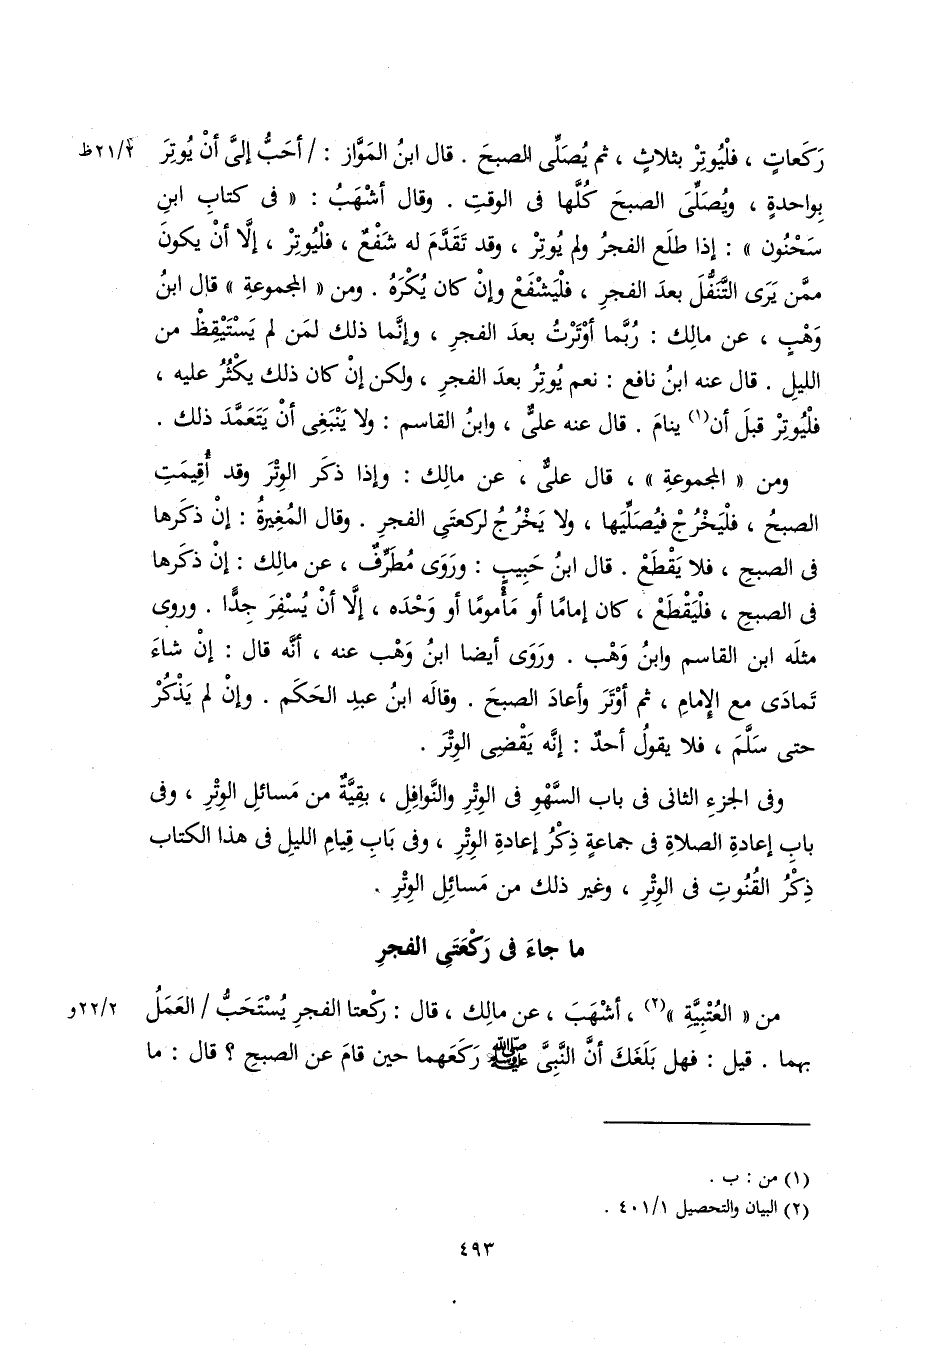 رَكَعاتٍ ، فلْيُوتِرْ بثلاثٍ ، ثم يُصَلِّى الصبحَ . قال ابنُ المَوَّاز : / أحَبُّ إلىَّ أنْ يُوتِرَ ٢١/٢ظ
بواحدةٍ ، ويُصَلِّىَ الصبحَ كُلَّها فى الوقتِ . وقال أشْهَبُ : « فى كتابِ ابنِ
سَحْنُون » : إذا طلَع الفجرُ ولم يُوتِرْ ، وقد تَقَدَّمَ له شَفْعٌ ، فلْيُوتِرْ ، إلَّا أنْ يكونَ
ممَّن يَرَى التَّنَفُّلَ بعدَ الفجرِ ، فلْيَشْفَعْ وإنْ كان يُكْرَهُ . ومن « المجموعةِ » قال ابنُ
وَهْبٍ ، عن مالِك : رُبَّما أوْتَرْتُ بعدَ الفجرِ ، وإنَّما ذلك لمَن لم يَسْتَيْقِظْ من
الليلِ . قال عنه ابنُ نافع : نعم يُوتِرُ بعدَ الفجرِ ، ولكن إنْ كان ذلك يكْثُرُ عليه ،
فلْيُوتِرْ قبلَ أن(١) ينامَ . قال عنه علىٌّ ، وابنُ القاسم : ولا يَنْبَغِى أنْ يَتَعَمَّدَ ذلك .
ومن « المجموعةِ » ، قال علىٌّ ، عن مالِك : وإذا ذكَر الوِتْرَ وقد أُقِيمَتِ
الصبحُ ، فلْيَخْرُجْ فيُصَلِّيَها ، ولا يَخْرُجُ لركعتَىِ الفجرِ . وقال المُغِيرةُ : إنْ ذكَرها
فى الصبحِ ، فلا يَقْطَعْ . قال ابنُ حَبِيبٍ : ورَوَى مُطَرِّفٌ ، عن مالِك : إنْ ذكَرها
فى الصبحِ ، فلْيَقْطَعْ ، كان إمامًا أو مَأْمومًا أو وَحْدَه ، إلَّا أنْ يُسْفِرَ جِدًّا . وروى
مثلَه ابن القاسم وابنُ وَهْب . ورَوَى أيضا ابنُ وَهْب عنه ، أنَّه قال : إنْ شاءَ
تَمادَى مع الإمامِ ، ثم أوْتَرَ وأعادَ الصبحَ . وقالَه ابنُ عبدِ الحَكَم . وإنْ لم يَذْكُرْ
حتى سَلَّمَ ، فلا يقولُ أحدٌ : إنَّه يَقْضِى الوِتْرَ .
وفى الجزءِ الثانى فى باب السَّهْوِ فى الوِتْرِ والنَّوافِلِ ، بقِيَّةٌ من مَسائلِ الوِتْرِ ، وفى
بابِ إعادةِ الصلاةِ فى جماعةٍ ذِكْرُ إعادةِ الوِتْرِ ، وفى بَابِ قِيامِ الليلِ فى هذا الكتاب
ذِكْرُ القُنُوتِ فى الوِتْرِ ، وغير ذلك من مَسائِلِ الوِتْرِ .
ما جاءَ فى رَكْعَتَىِ الفجرِ
من « العُتْبِيَّةِ »(٢) ، أشْهَبَ ، عن مالِك ، قال : ركْعتا الفجرِ يُسْتَحَبُّ / العَمَلُ ٢٢/٢و
بهما . قيل : فهل بَلَغَكَ أنَّ النَّبِىَّ ﷺ رَكَعَهما حين قامَ عن الصبحِ ؟ قال : ما
(١) من : ب .
(٢) البيان والتحصيل ٤٠١/١ .
٤٩٣